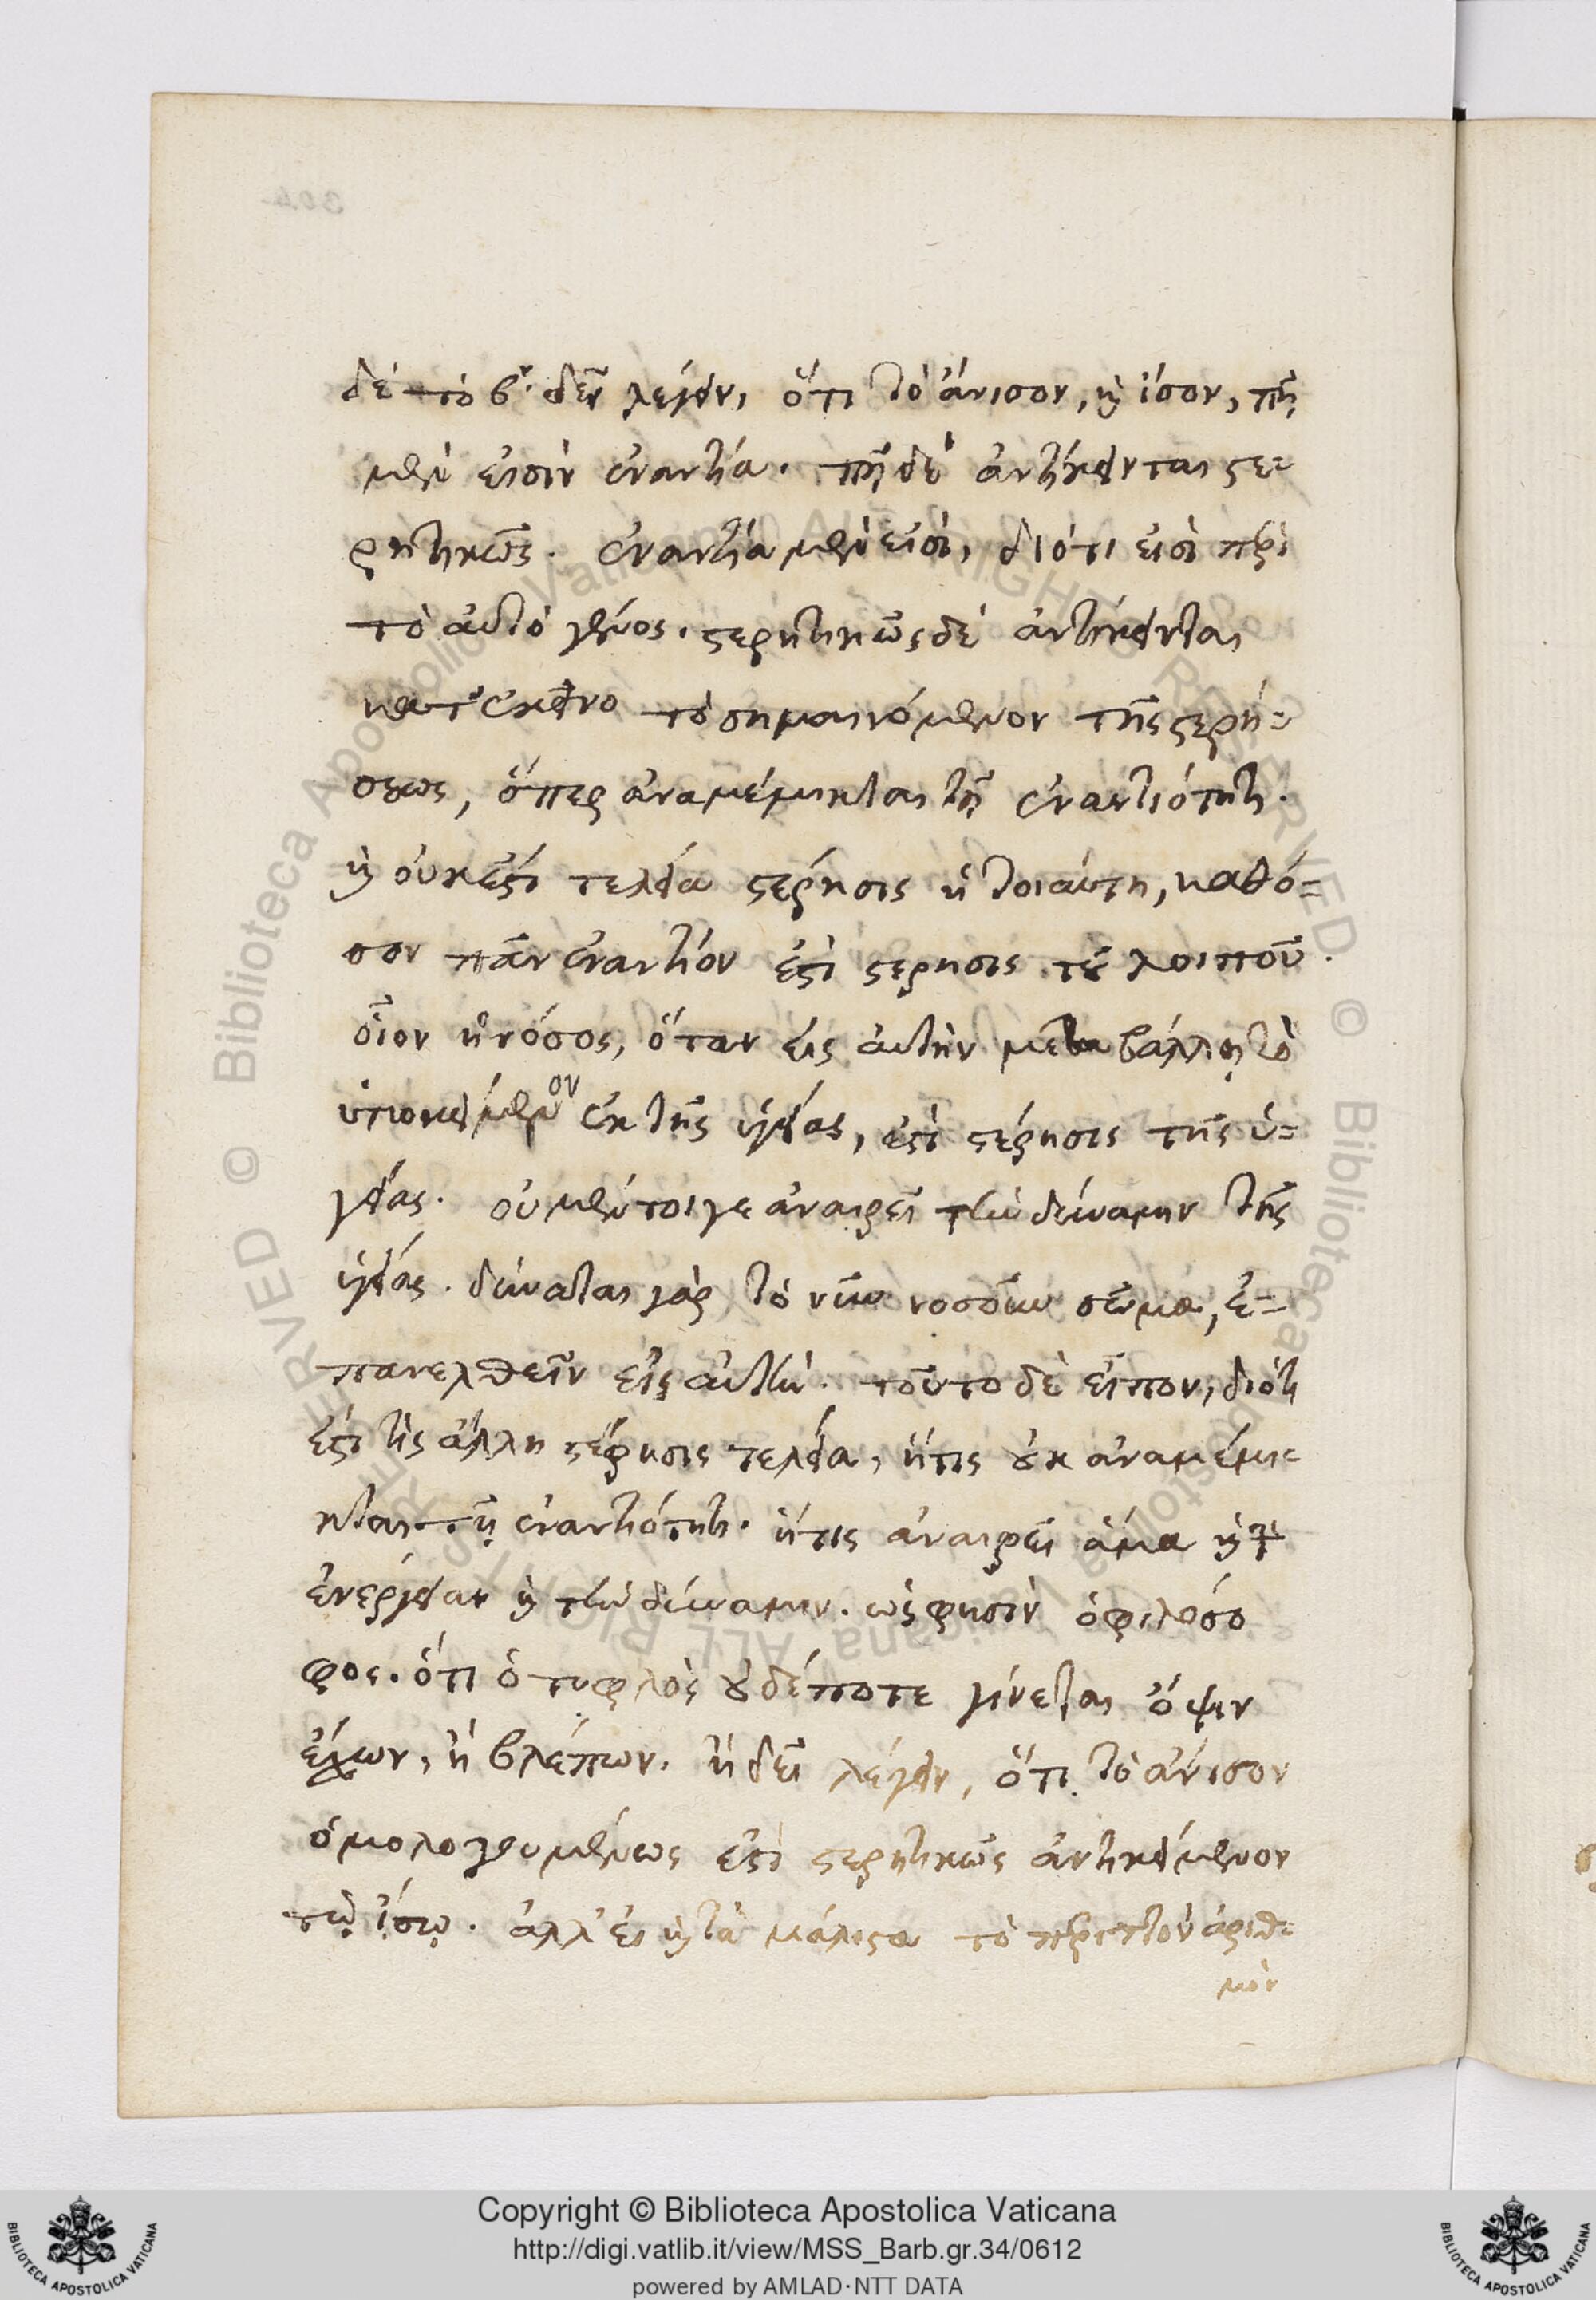 δὲ τὸ βʹ. δεῖ λέγειν, ὅτι τὸ ἄνισον, ϗ ἴσον, πῆ
μὲν εἰσὶν ἐναντία. πῆ δὲ ἀντίκεινται στε=
ρητικῶς. ἐναντία μὲν εἰσὶ, διότι εἰσὶ περὶ
τὸ αὐτὸ γένος. στερητικῶς δὲ ἀντίκεινται
κατ' ἐκεῖνο τὸ σημαινόμενον τῆς στερή=
σεως, ὅπερ ἀναμέμικται τῇ ἐναντιότητι.
ϗ οὐκ ἐστὶ τελεία στέρησις ἡ τοιαύτη, καθό=
σον πᾶν ἐναντίον ἐστὶ στέρησις τοῦ λοιποῦ.
οἷον ἡ νόσος, ὅταν εἰς αὐτὴν μεταβάλλῃ τὸ
ὑποκείμενον ἐκ τῆς ὑγείας, ἐστὶ στέρησις τῆς ὑ=
γείας. οὐ μέντοιγε ἀναιρεῖ τὴν δύναμιν τῆς
ὑγείας. δύναται γὰρ τὸ νῦν νοσοῦν σῶμα, ἐ=
πανελθεῖν εἰς αὐτήν. τοῦτο δὲ εἶπον, διότι
ἐστί τις ἄλλη στέρησις τελεία, ἥτις οὐκ ἀναμέμι=
κται τῇ ἐναντιότητι. ἥτις ἀναιρεῖ ἅμα ϗ τὴν
ἐνέργειαν ϗ τὴν δύναμιν. ὥς φησὶν ὁ φιλόσο
φος. ὅτι ὁ τυφλὸς οὐδέποτε γίνεται ὄψιν
ἔχων, ἢ βλέπων. ἢ δεῖ λέγειν, ὅτι τὸ ἄνισον
ὁμολογουμένως ἐστὶ στερητικῶς ἀντικείμενον
τῷ ἴσῳ. ἀλλ' εἰ ϗ τὰ μάλιστα τὸ περιττὸν ἀριθ=
μὸν
Copyright © Biblioteca Apostolica Vaticana
http://digi.vatlib.it/view/MSS_Barb.gr.34/0612
powered by AMLAD·NTT DATA